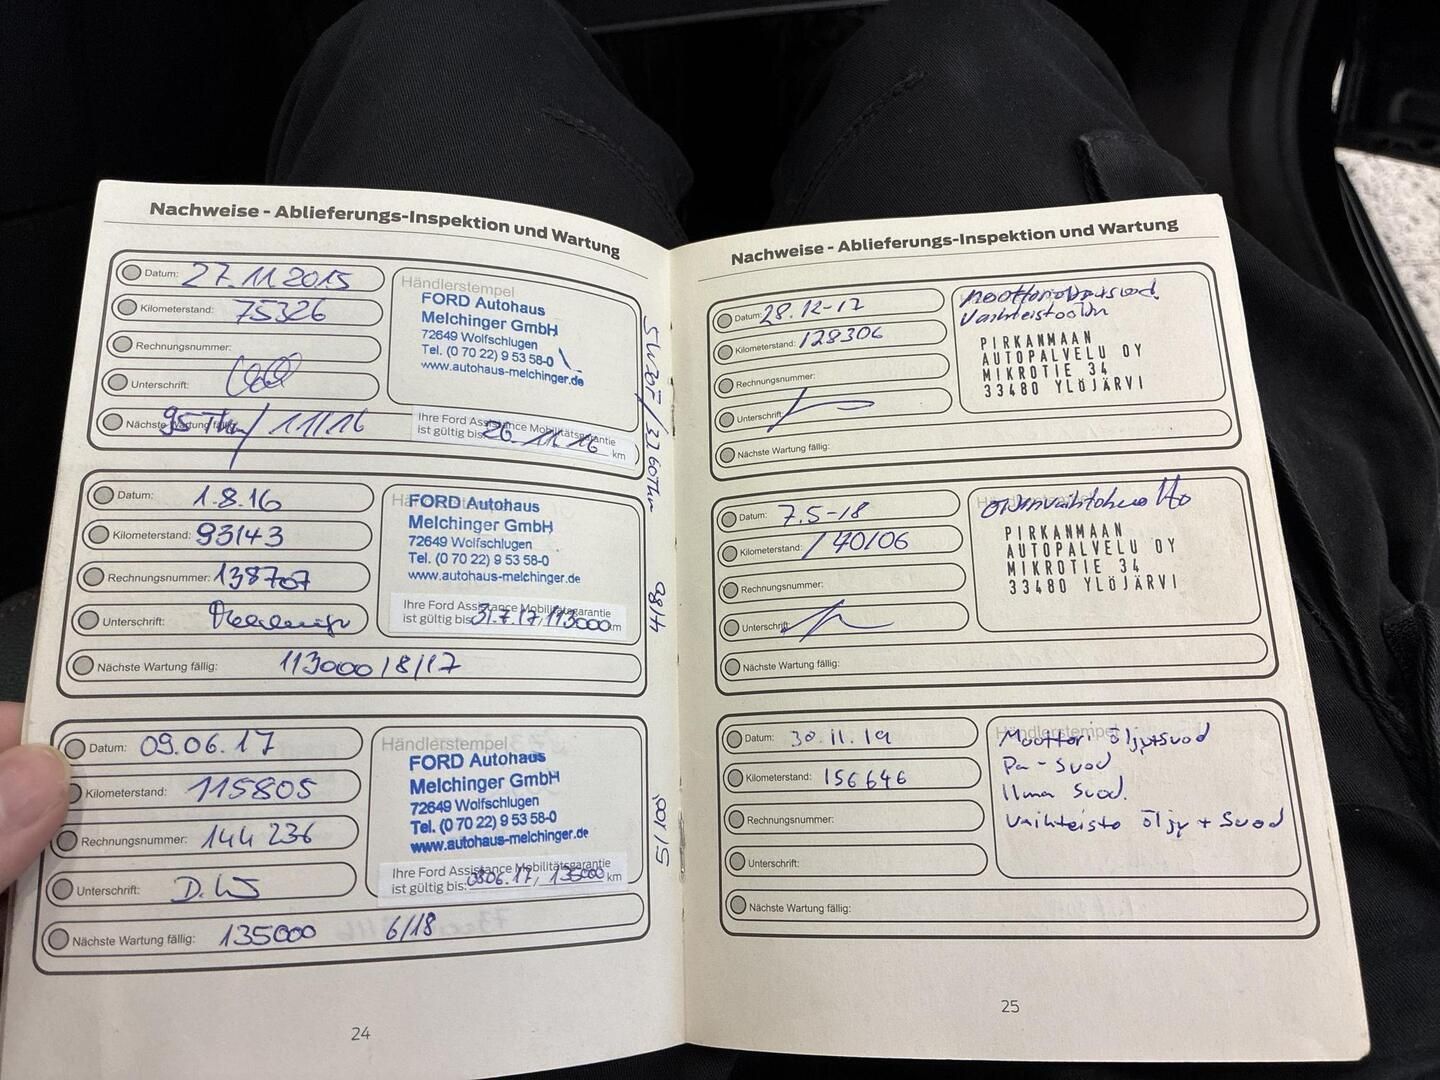 Nachweise - Ablieferungs-Inspektion und Wartung
Datum: 27.11.2015
Kilometerstand: 75326
Rechnungsnummer:
Unterschrift:
Nächste Wartung fällig: 95 / 11/16
Händlerstempel
FORD Autohaus
Melchinger GmbH
72649 Wolfschlugen
Tel. (0 70 22) 9 53 58-0
www.autohaus-melchinger.de
Ihre Ford Assistance Mobilitätsgarantie
ist gültig bis: 26.11.16 km
Datum: 1.8.16
Kilometerstand: 93143
Rechnungsnummer: 138707
Unterschrift:
Nächste Wartung fällig: 113000 / 8/17
FORD Autohaus
Melchinger GmbH
72649 Wolfschlugen
Tel. (0 70 22) 9 53 58-0
www.autohaus-melchinger.de
Ihre Ford Assistance Mobilitätsgarantie
ist gültig bis: 31.7.17, 113000 km
Datum: 09.06.17
Kilometerstand: 115805
Rechnungsnummer: 144 236
Unterschrift:
Nächste Wartung fällig: 135000 6/18
Händlerstempel
FORD Autohaus
Melchinger GmbH
72649 Wolfschlugen
Tel. (0 70 22) 9 53 58-0
www.autohaus-melchinger.de
Ihre Ford Assistance Mobilitätsgarantie
ist gültig bis: 17, 135000 km
24
Nachweise - Ablieferungs-Inspektion und Wartung
Datum: 28.12-17
Kilometerstand: 128306
Rechnungsnummer:
Unterschrift:
Nächste Wartung fällig:
PIRKANMAAN
AUTOPALVELU OY
MIKROTIE 34
33480 YLÖJÄRVI
Datum: 7.5-18
Kilometerstand: 140106
Rechnungsnummer:
Unterschrift:
Nächste Wartung fällig:
PIRKANMAAN
AUTOPALVELU OY
MIKROTIE 34
33480 YLÖJÄRVI
Datum: 30.11.19
Kilometerstand: 156646
Rechnungsnummer:
Unterschrift:
Nächste Wartung fällig:
Händlerstempel
Moottori öljy+suod
Pa-suod
Ilma suod.
Vaihteisto öljy + suod
25